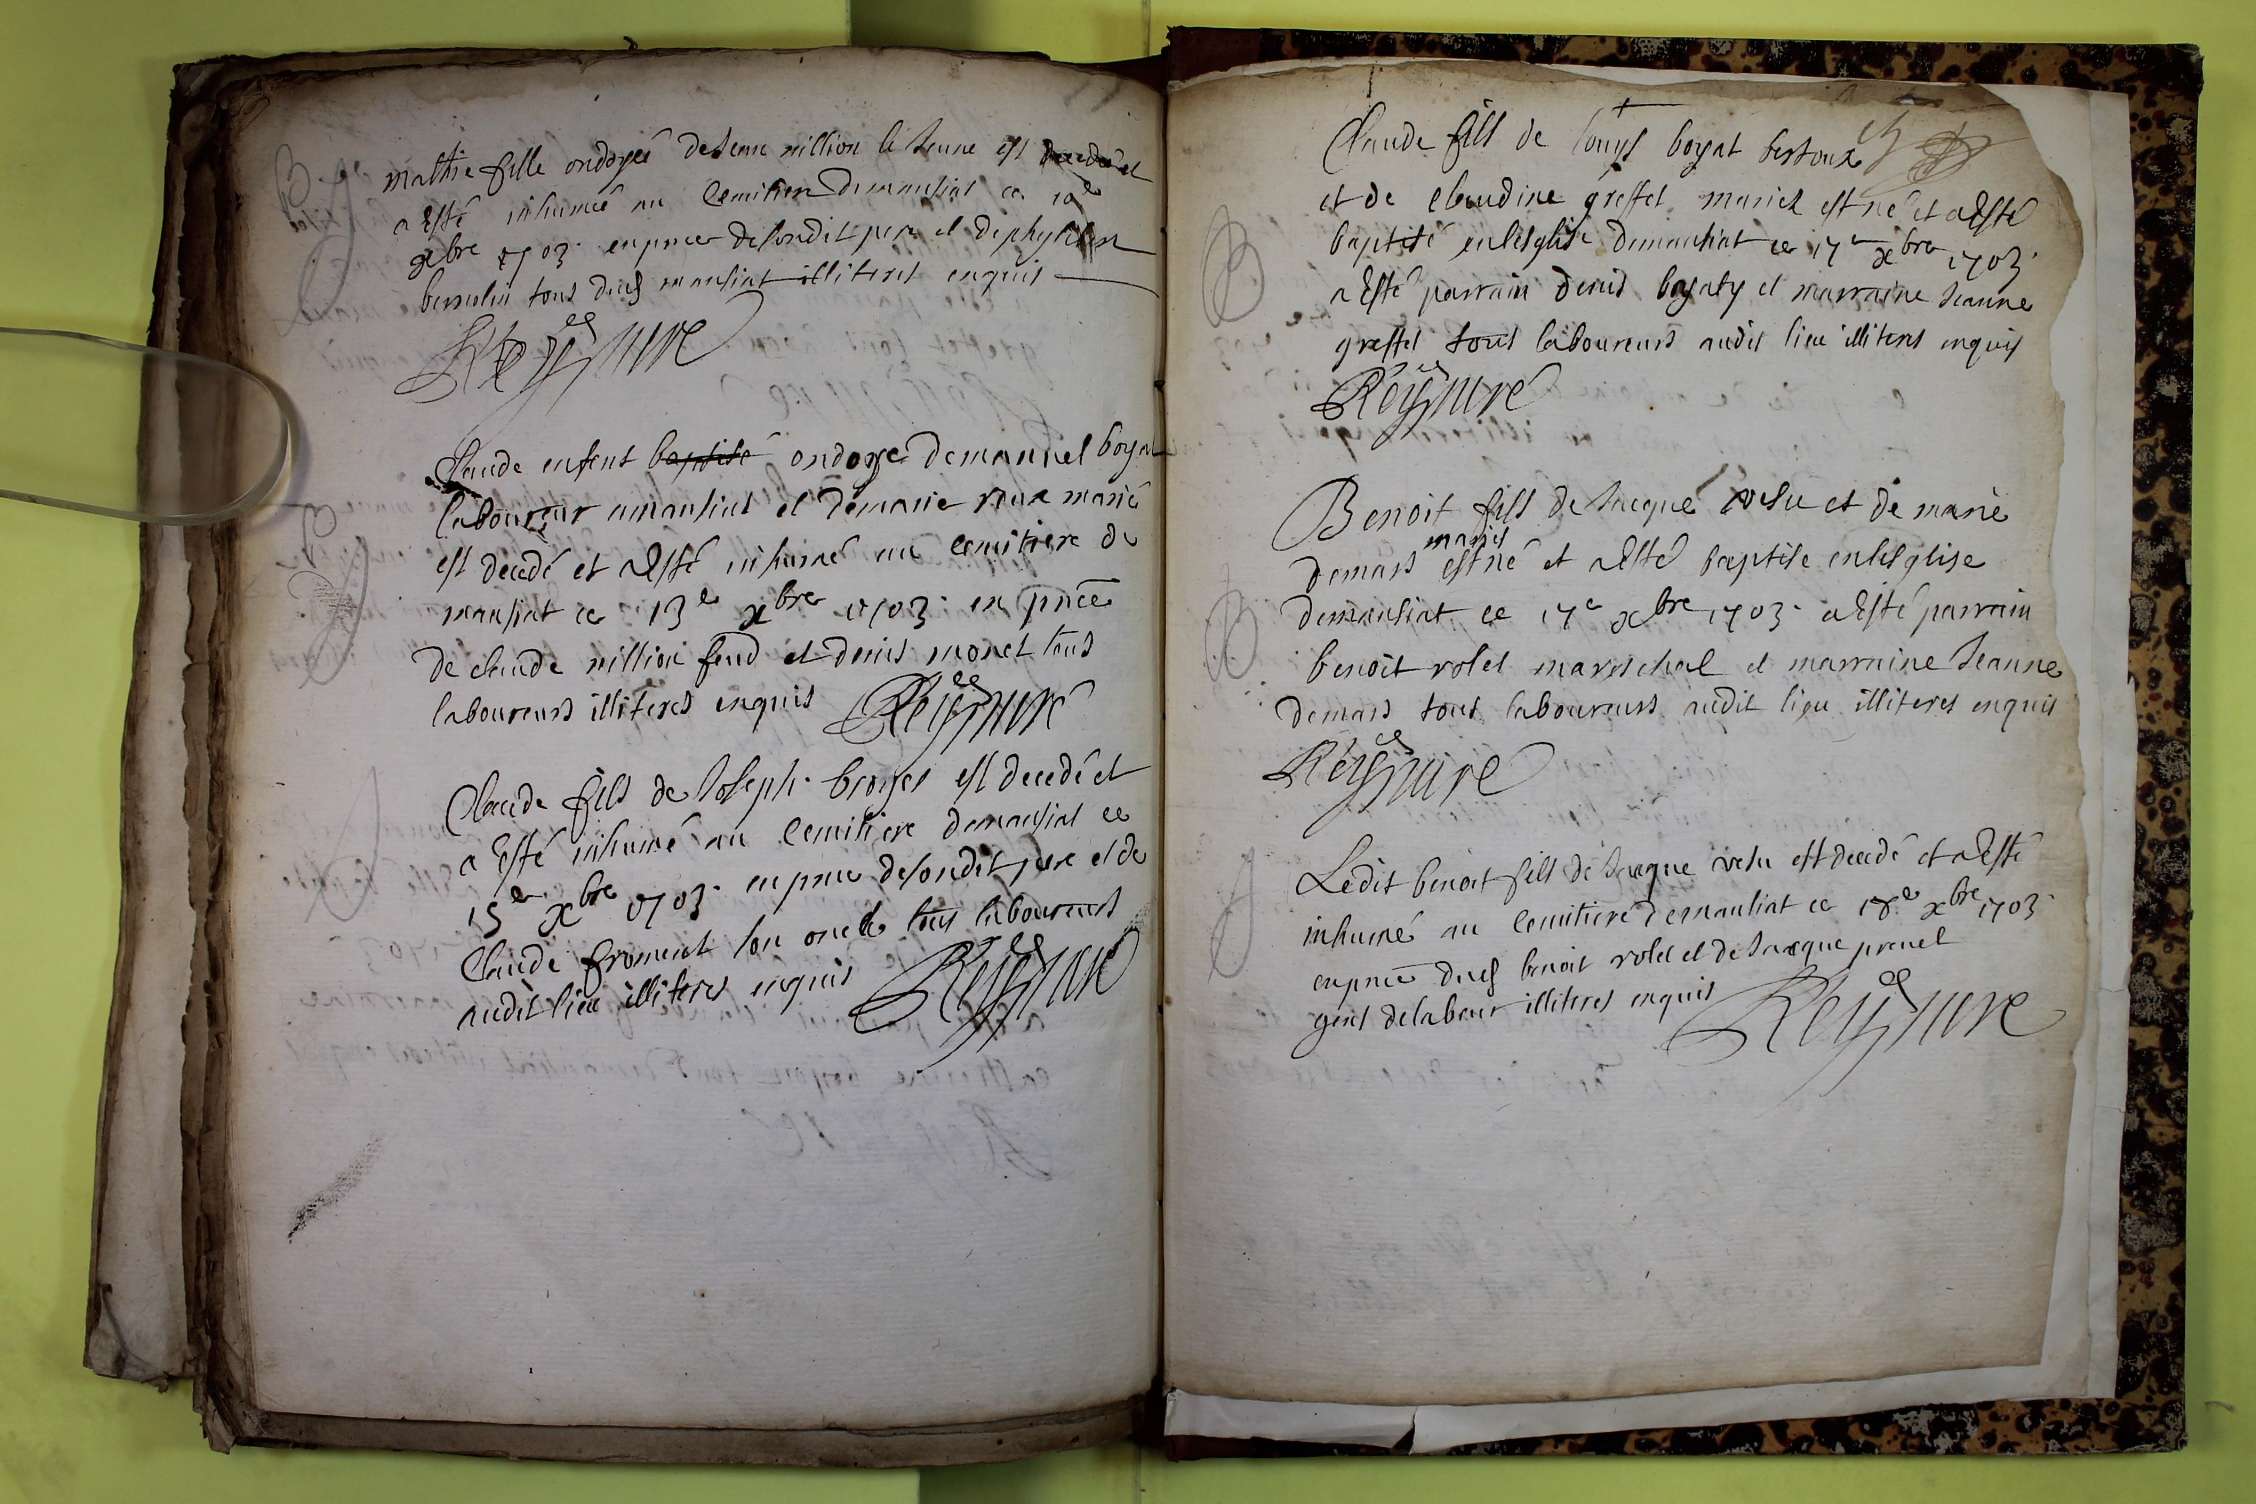 mathie fille ondoyeé de Jean million le Jeune est
a Esté inhumeé au Cemitiere de mansiat ce 10e
xbre 1703 en pnce de sondit pere et de
tous dud mansiat illiteres enquis
Reyssure
Claude enfent baptisé ondoye demanuel boyat
laboureur amansiat et demarie roux marié
est decedé et aEsté inhumé au cemitiere de
mansiat ce 13e xbre 1703 en pnce
de claude million feud et denis monet tous
laboureurs illiteres enquis Reyssure
Claude fils de Joseph broyer est decedé et
a Esté inhumé au Cemitiere demansiat ce
15e xbre 1703 en pnce desondit pere et de
Claude froment son oncle tous laboureurs
audit lieu illiteres enquis Reyssure
Claude fils de louys boyat
et de claudine greffet mariez est né et aEsté
baptisé enlesglise demansiat ce 17e xbre 1703
a Esté parrain denis boyaty et marraine Jeanne
greffet tous laboureurs audit lieu illiteres enquis
Reyssure
Benoit fils de Jacque vesu et de marie
mariés
demars est né et aEsté baptise enlesglise
demansiat ce 17e xbre 1703 aEsté parrain
benoit rolet mareschal et marraine Jeanne
demars tous laboureurs audit lieu illiteres enquis
Reyssure
Ledit benoit fils de Jacque vesu est decedé et aEsté
inhumé au Cemitiere demansiat ce 18e xbre 1703
en pnce dud benoit rolet et de Jacque
gens delabeur illiteres enquis Reyssure